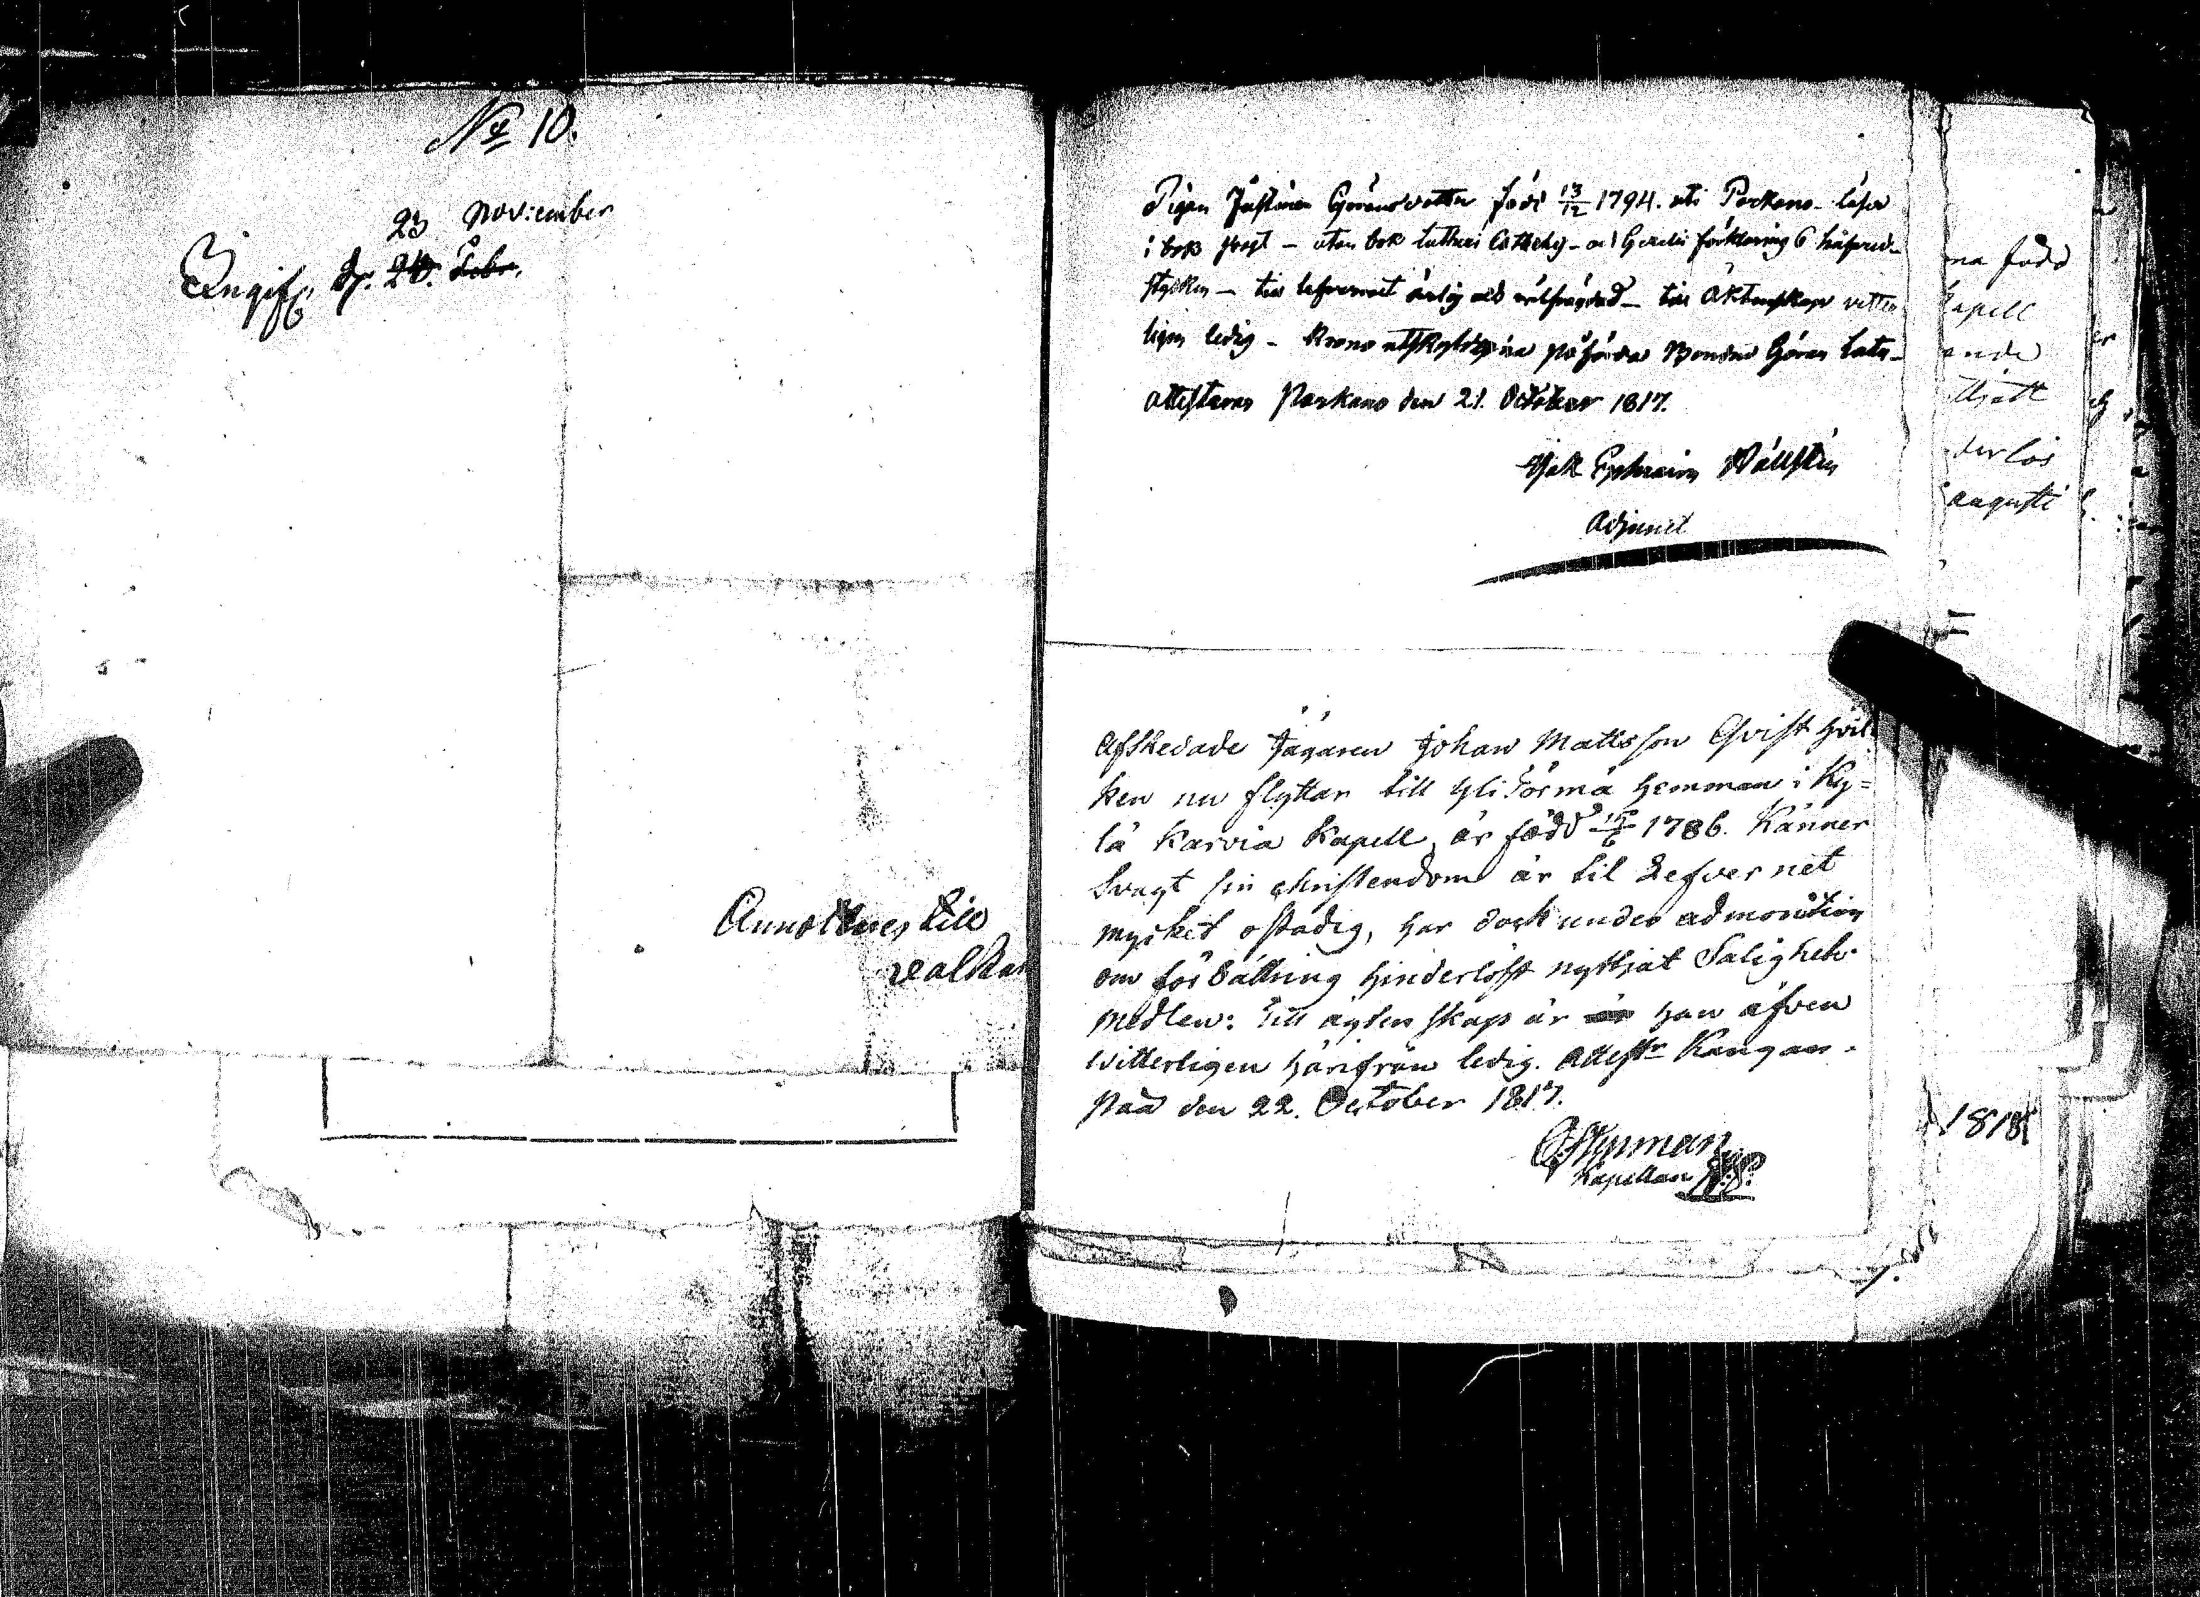 No 10.
23 November
Ingifv. d. 20. Febr.
till
Pigan Justina Göransdotter född 13/12 1794. uti Parkano- läser
i bok svagt - utan bok Lutheri Catheky- och förklaring 6 hufvud-
stycken - till lefvernet ärlig och välfrägdad - till äktenskap vetter
ligen ledig - Krono utskylderna påförda Bonden Göran
attesteras Parkano den 21. October 1817.
Ephraim Wallstén
Adjunct
Afskedade Jägaren Johan Mattsson Qvist hvil
ken nu flyttar till Yli hemman i Ky=
lä Karvia Kapell, är född 1786. Känner
Svagt sin christendom är til Lefvernet
mycket ostadig, har dock under admonition
om förbättring hinderlöst nyttjat Salighets
medlen: Till äktenskap är är han äfven
witterligen härifrån ledig. Attestr Kangan-
pää den 22. October 1817.
Kapellan
na född
kapell
ande
ttjatt
derlös
augusti
1818